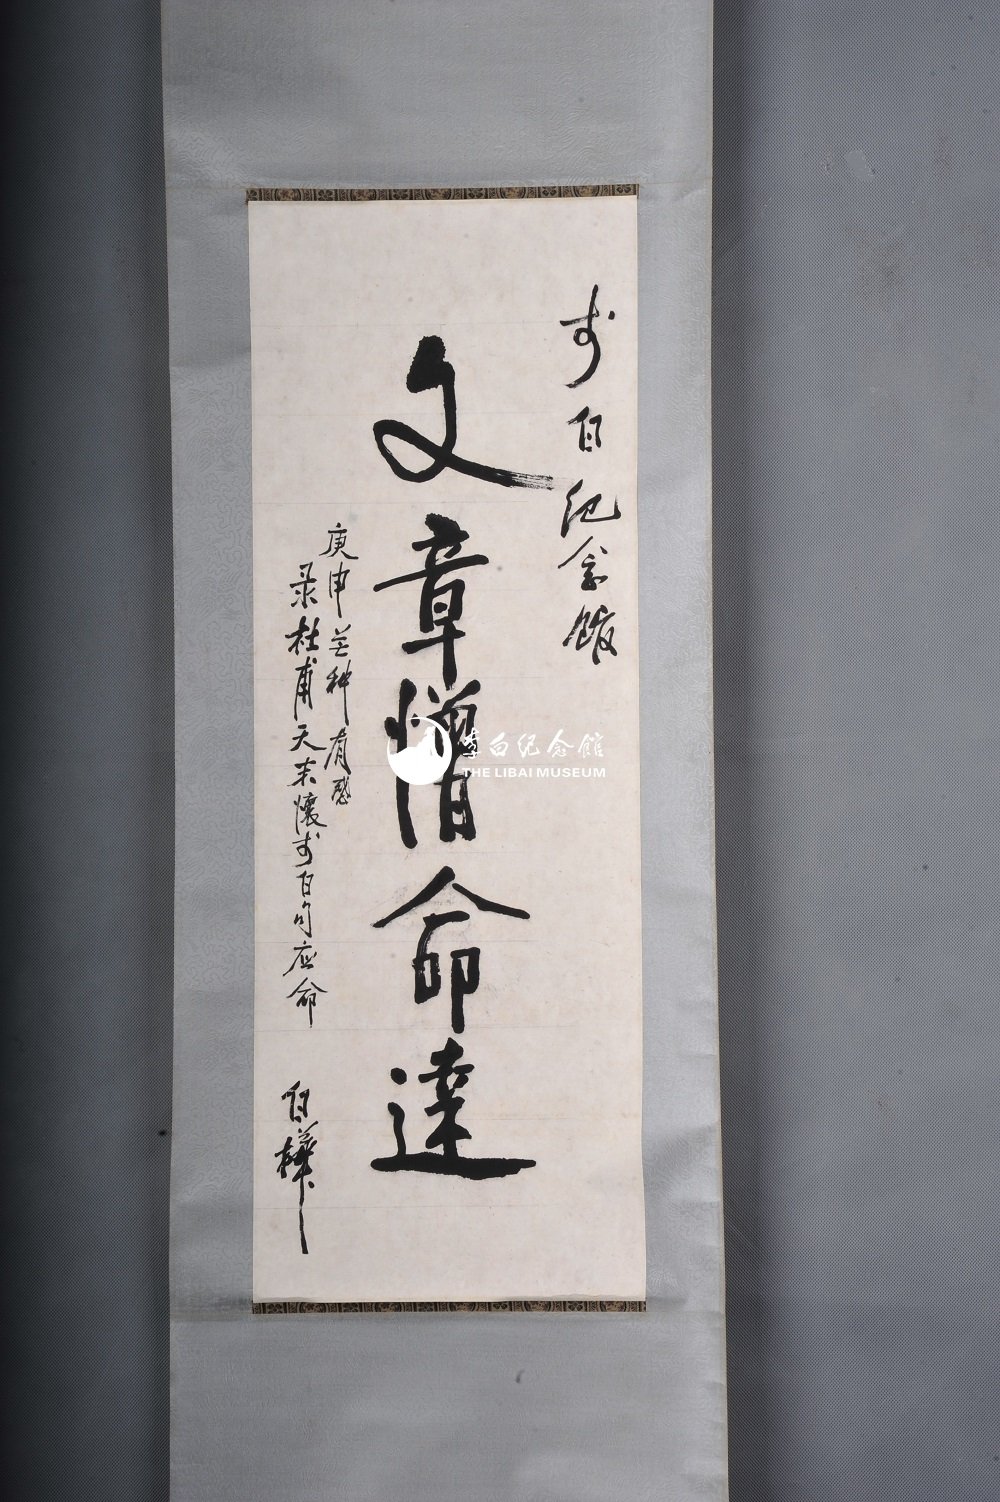 李白纪念馆
文章憎命達
庚申芒种有感
录杜甫天末懷李白句应命
白桦
李白纪念館
THE LIBAI MUSEUM